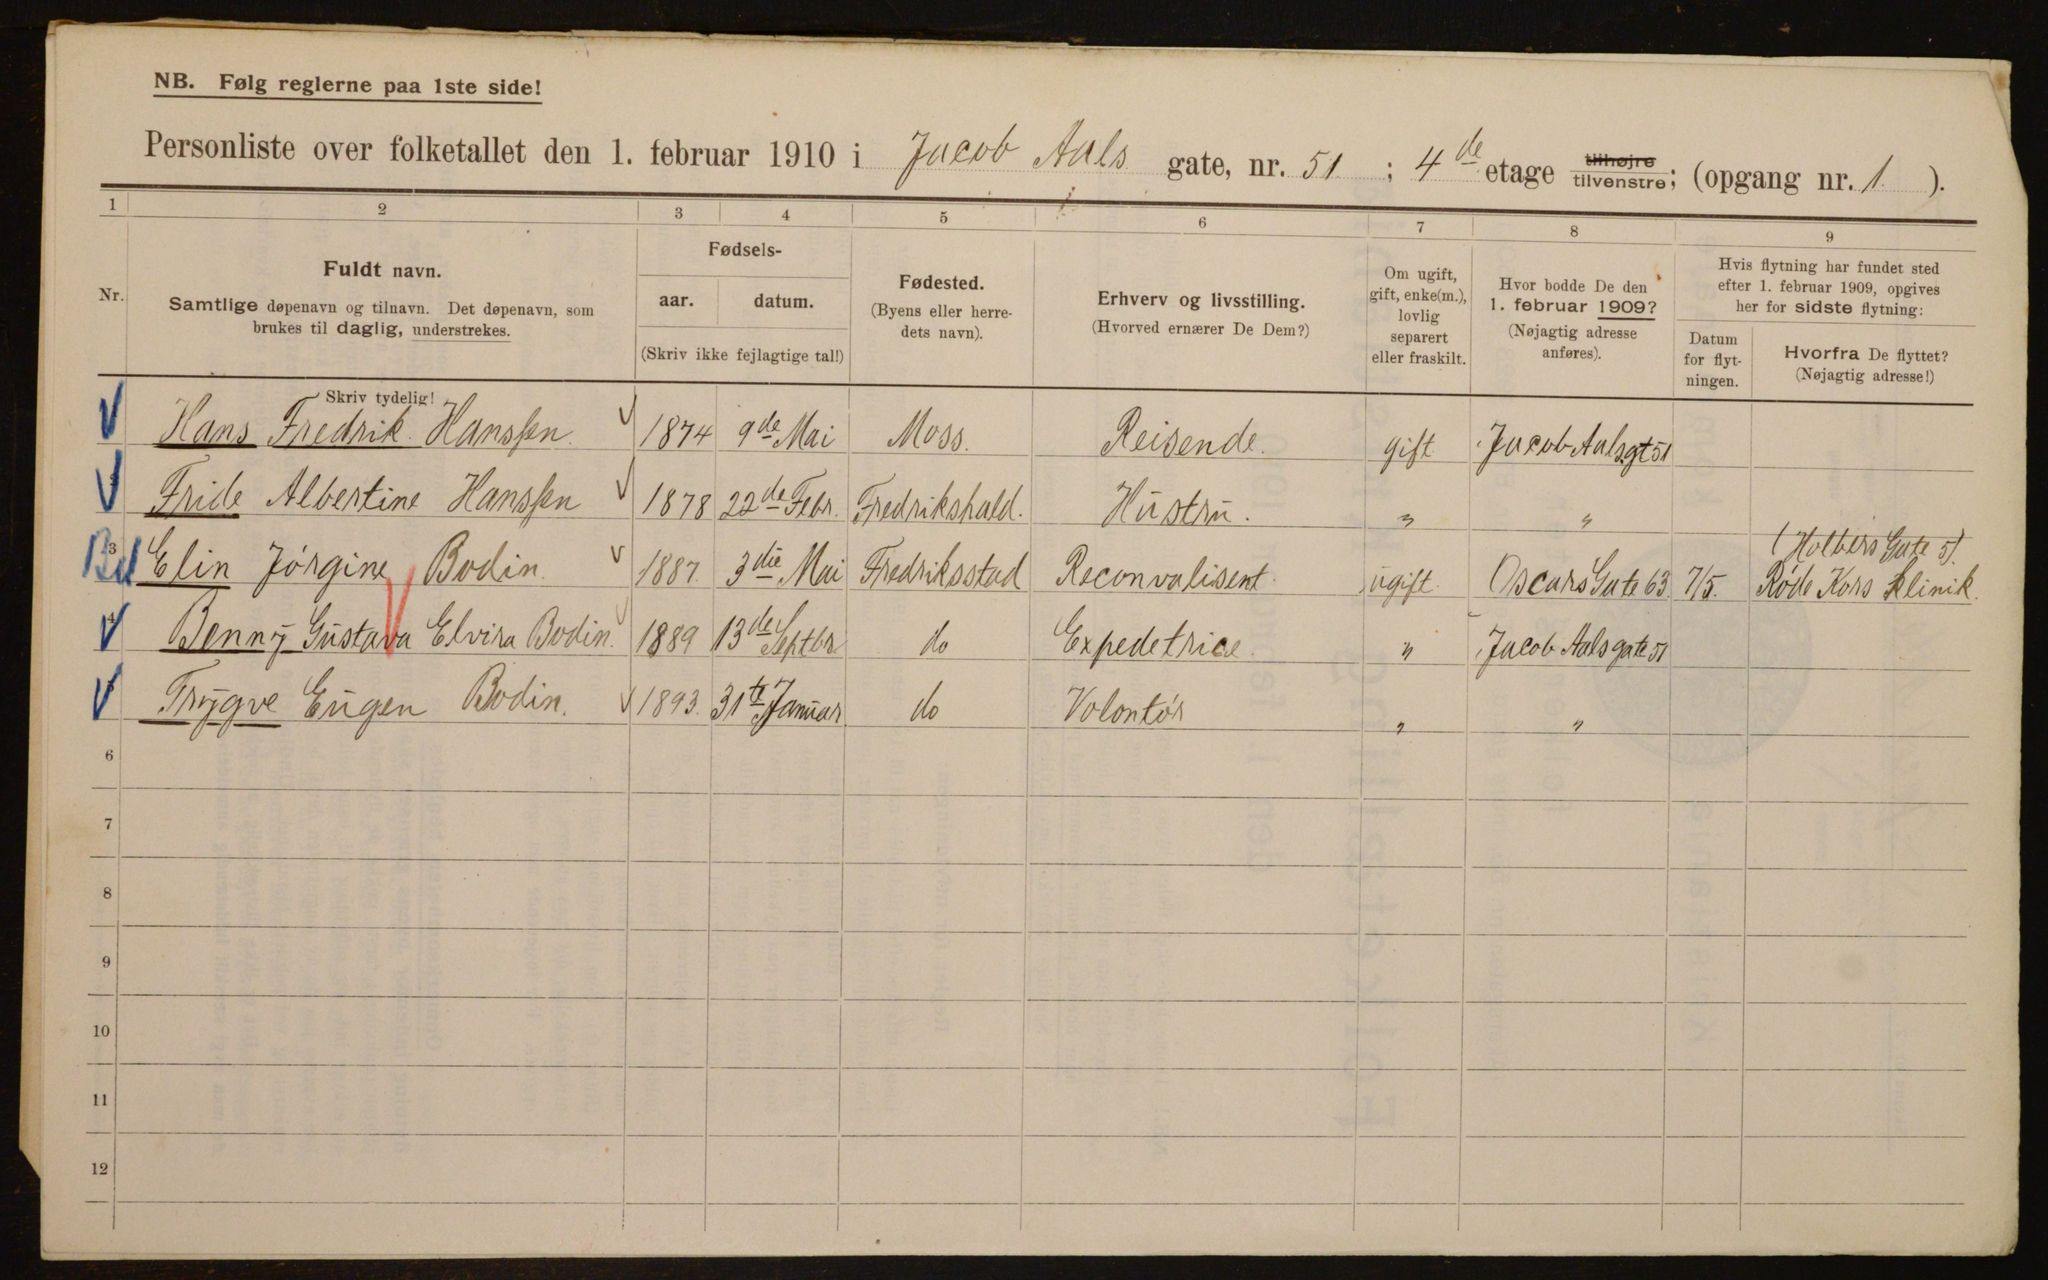 NB. Følg reglerne paa 1ste side!
Personliste over folketallet den 1. februar 1910 i Jacob Aals gate, nr. 51 ; 4de etage tilhøjre tilvenstre; (opgang nr. 1 ).
1 2 3 4 5 6 7 8 9
Nr.
Fuldt navn.
Samtlige døpenavn og tilnavn. Det døpenavn, som
brukes til daglig, understrekes.
Skriv tydelig!
Fødsels-
aar. datum.
(Skriv ikke fejlagtige tal!)
Fødested.
(Byens eller herre-
dets navn).
Erhverv og livsstilling.
(Hvorved ernærer De Dem?)
Om ugift,
gift, enke(m.),
lovlig
separert
eller fraskilt.
Hvor bodde De den
1. februar 1909?
(Nøjagtig adresse
anføres).
Hvis flytning har fundet sted
efter 1. februar 1909, opgives
her for sidste flytning:
Datum
for flyt-
ningen.
Hvorfra De flyttet?
(Nøjagtig adresse!)
Hans Fredrik Hanssen. 1874 9de Mai Moss. Reisende. gift Jacob Aalsgt 51
Fride Albertine Hanssen 1878 22de Febr. Fredrikshald. Hustru. " "
(Holbers Gate 5).
3 Elin Jørgine Bodin. 1887. 3die Mai Fredriksstad Reconvalisent. ugift. Oscars Gate 63. 7/5. Røde Kors Klinik.
4 Benny Gustava Elvira Bodin. 1889 13de Septbr do Expedetrice. " Jacob Aalsgate 51
Trygve Eugen Bodin. 1893. 31te Januar do Volontør " "
6
7
8
9
10
11
12